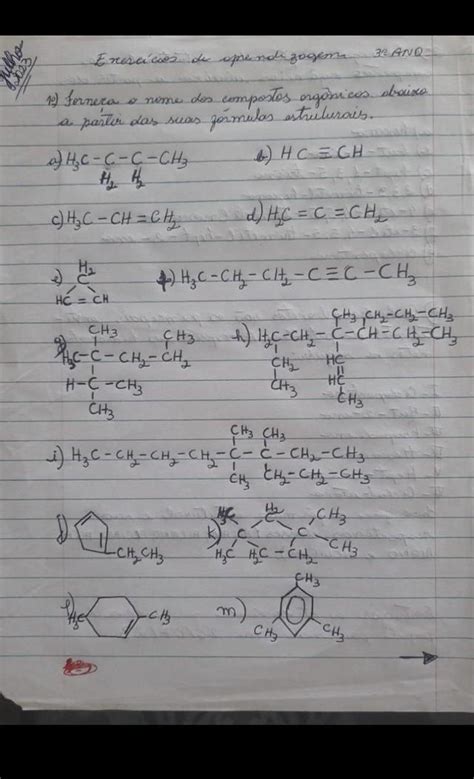 Julho
2023
Exercícios de aprendizagem 3º ANO
Forneça o nome dos compostos orgânicos abaixo
a partir das suas fórmulas estruturais.
a) H₃C-C-C-CH₃ b) HC≡CH
H₂ H₂
c) H₃C-CH=CH₂ d) H₂C=C=CH₂
e) H₂
C
HC=CH
H₃C-CH₂-CH₂-C≡C-CH₃
g) CH₃ CH₃
H₃C-C-CH₂-CH₂
H-C-CH₃
CH₃
h) CH₃ CH₂-CH₂-CH₃
H₂C-CH₂-C-CH-CH₂-CH₃
CH₂ HC
CH₃ HC
CH₃
i) CH₃ CH₃
H₃C-CH₂-CH₂-CH₂-C-C-CH₂-CH₃
CH₃ CH₂-CH₂-CH₃
j) CH₂CH₃
k) H₃C H₂ CH₃
C C C
H₃C H₂C-CH₂ CH₃
l) H₃C CH₃
m) CH₃
CH₃ CH₃